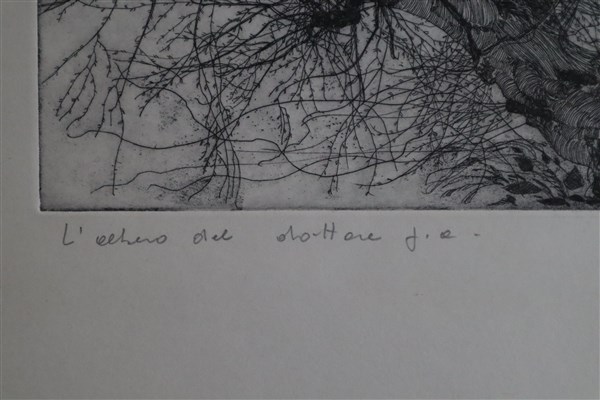 L'albero del dottore g.a.